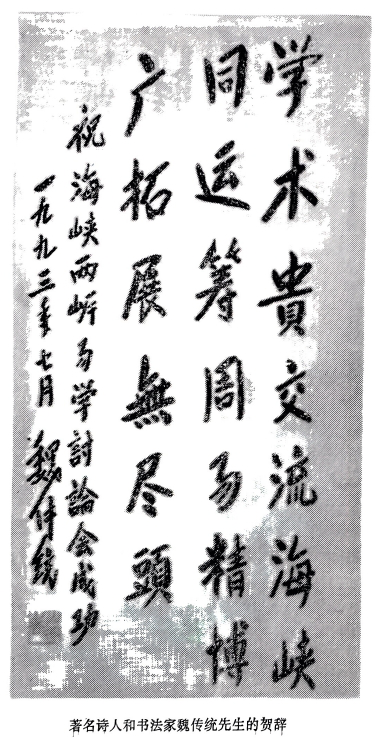 学术貴交流海峡
同运筹周易精博
广拓展無尽頭
祝海峡两岸易学討論会成功
一九九三年七月 魏传统
著名诗人和书法家魏传统先生的贺辞